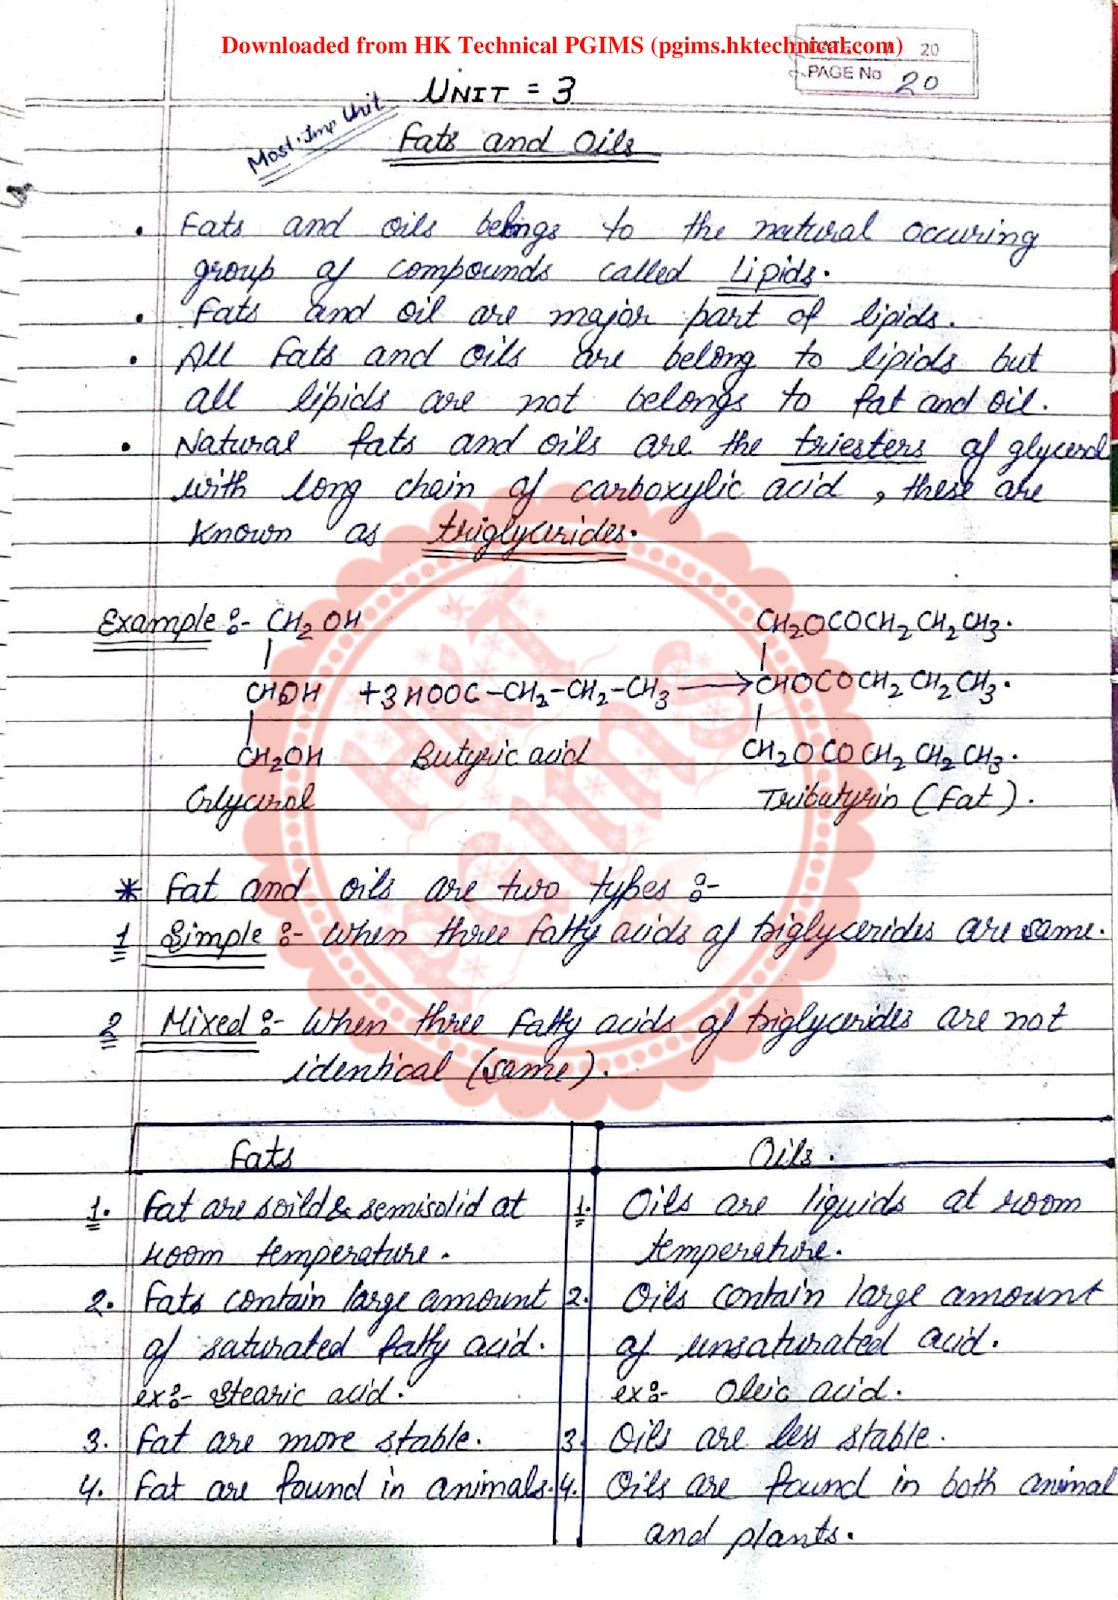 Downloaded from HK Technical PGIMS (pgims.hktechnical.com)
DATE 20
PAGE No 20
UNIT = 3
Most. Imp Unit
Fats and Oils
• Fats and oils belongs to the natural occuring
group of compounds called Lipids.
• Fats and oil are major part of lipids.
• All fats and oils are belong to lipids but
all lipids are not belongs to fat and oil.
• Natural fats and oils are the triesters of glycerol
with long chain of carboxylic acid, these are
known as triglycerides.
Example :- CH2OH CH2OCOCH2CH2CH3.
CHOH +3HOOC-CH2-CH2-CH3 → CHOCOCH2CH2CH3.
CH2OH Butyric acid CH2OCOCH2CH2CH3.
Glycerol Tributyrin (Fat).
* Fat and oils are two types :-
1 Simple :- When three fatty acids of triglycerides are same.
2 Mixed :- When three fatty acids of triglycerides are not
identical (same).
Fats Oils.
1. Fat are soild & semisolid at 1. Oils are liquids at room
room temperature. temperature.
2. Fats contain large amount 2. Oils contain large amount
of saturated fatty acid. of unsaturated acid.
ex:- Stearic acid. ex:- Oleic acid.
3. Fat are more stable. 3. Oils are less stable.
4. Fat are found in animals. 4. Oils are found in both animal
and plants.
HKT
PGIMS